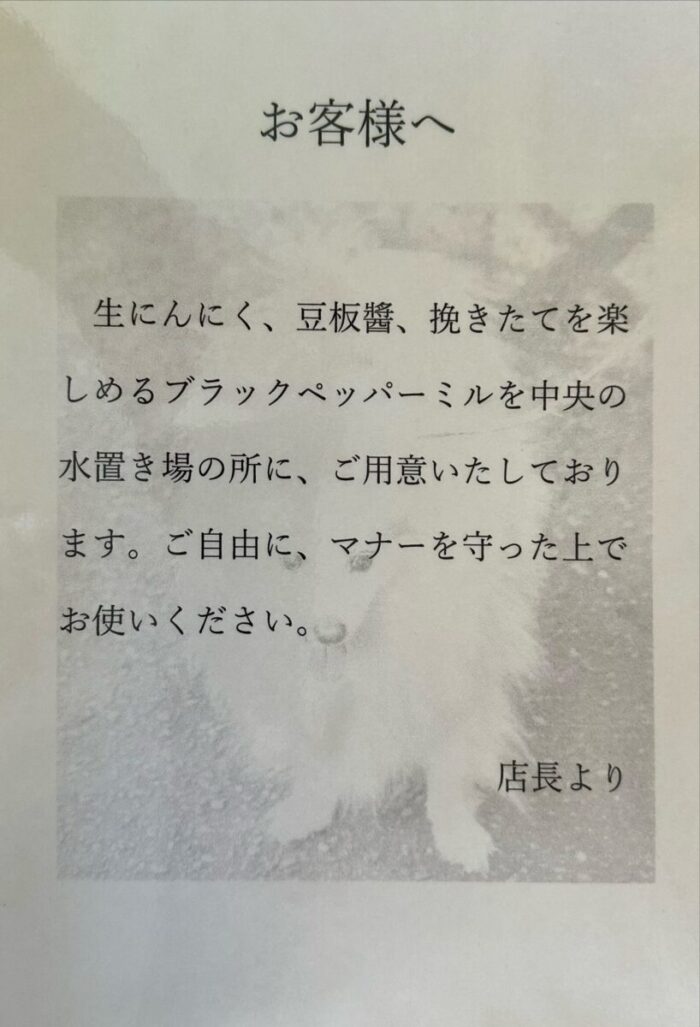 お客様へ
生にんにく、豆板醬、挽きたてを楽
しめるブラックペッパーミルを中央の
水置き場の所に、ご用意いたしており
ます。ご自由に、マナーを守った上で
お使いください。
店長より